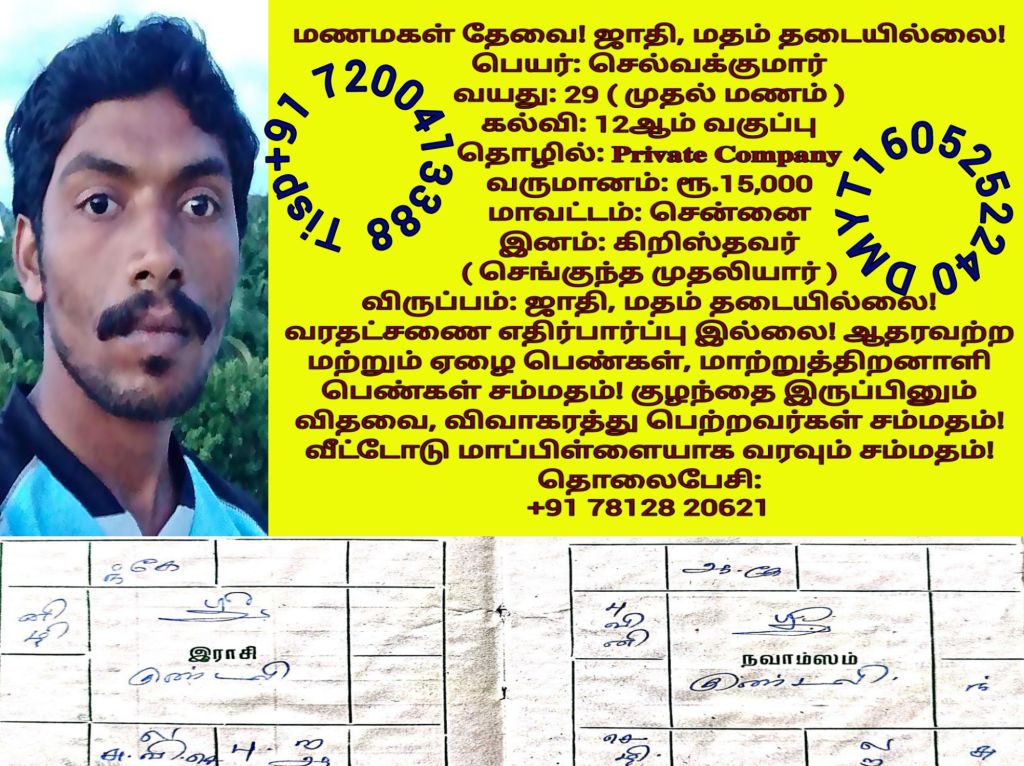 மணமகள் தேவை! ஜாதி, மதம் தடையில்லை!
பெயர்: செல்வக்குமார்
வயது: 29 ( முதல் மணம் )
கல்வி: 12ஆம் வகுப்பு
தொழில்: Private Company
வருமானம்: ரூ.15,000
மாவட்டம்: சென்னை
இனம்: கிறிஸ்தவர்
( செங்குந்த முதலியார் )
விருப்பம்: ஜாதி, மதம் தடையில்லை!
வரதட்சணை எதிர்பார்ப்பு இல்லை! ஆதரவற்ற
மற்றும் ஏழை பெண்கள், மாற்றுத்திறனாளி
பெண்கள் சம்மதம்! குழந்தை இருப்பினும்
விதவை, விவாகரத்து பெற்றவர்கள் சம்மதம்!
வீட்டோடு மாப்பிள்ளையாக வரவும் சம்மதம்!
தொலைபேசி:
+91 78128 20621
Tisp+91 7200413388
DMYT1605252240
இராசி
நவாம்ஸம்